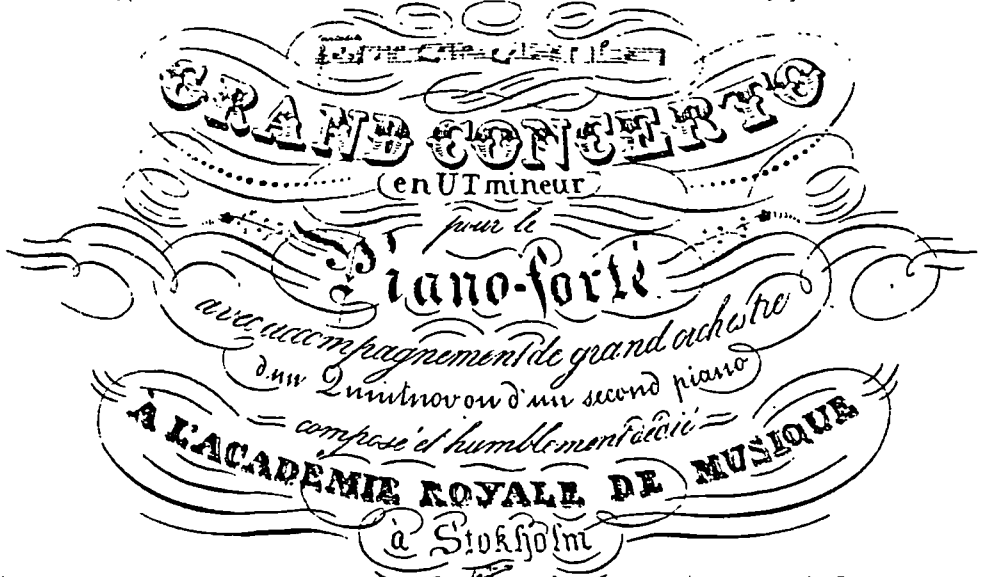 GRAND CONCERTO
en UT mineur
pour le
Piano-forté
avec accompagnement de grand orchestre
d'un ou d'un second piano
composé et humblement dédié
À L'ACADÉMIE ROYALE DE MUSIQUE
à Stokholm